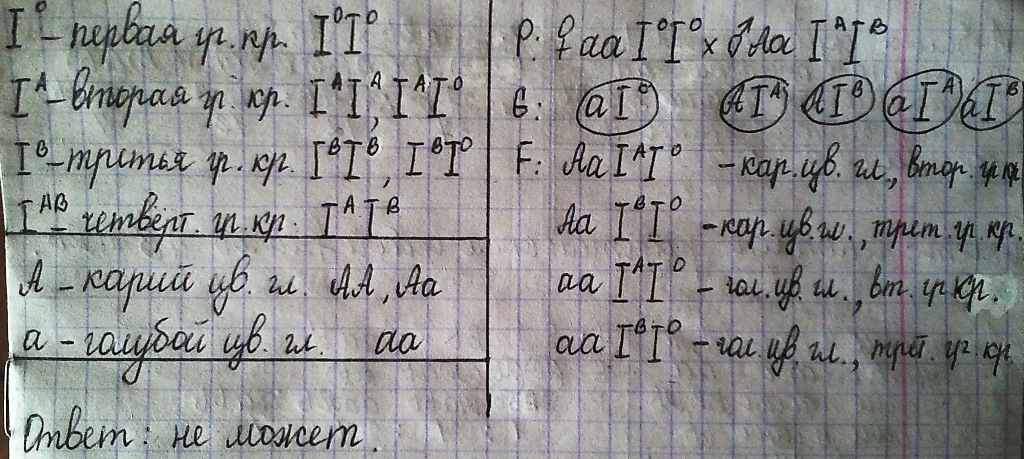 I⁰ – первая гр. кр. I⁰I⁰
Iᴬ – вторая гр. кр. IᴬIᴬ, IᴬI⁰
Iᴮ – третья гр. кр. IᴮIᴮ, IᴮI⁰
Iᴬᴮ – четвёрт. гр. кр. IᴬIᴮ
А – карий цв. гл. АА, Аа
а – голубой цв. гл. аа
Ответ: не может.
P: ♀ аа I⁰I⁰ × ♂ Аа IᴬIᴮ
G: аI⁰ АIᴬ АIᴮ аIᴬ аIᴮ
F: Аа IᴬI⁰ – кар. цв. гл., втор. гр кр
Аа IᴮI⁰ – кар. цв. гл., трет. гр. кр.
аа IᴬI⁰ – гол. цв. гл., вт. гр кр.
аа IᴮI⁰ – гол. цв. гл., трет. гр. кр.